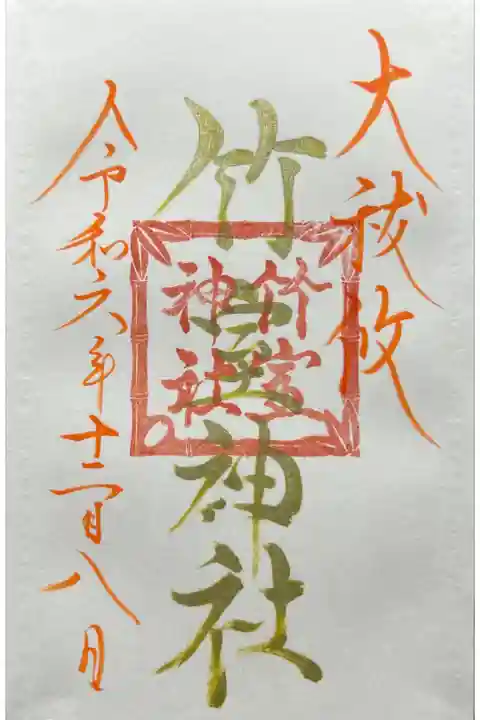 大祓
竹室神社
竹室神社
令和六年十二月八日